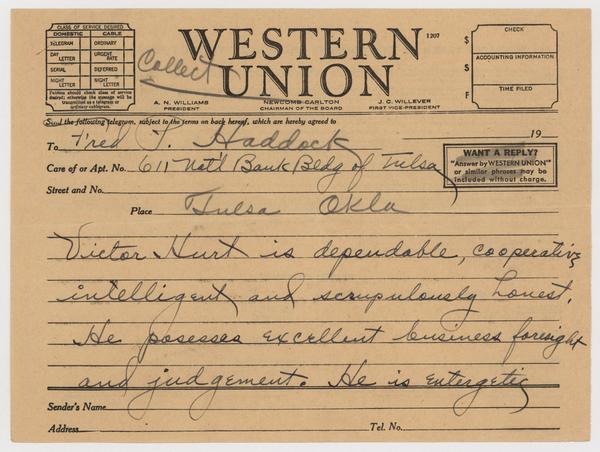 CLASS OF SERVICE DESIRED
DOMESTIC CABLE
TELEGRAM ORDINARY
DAY LETTER URGENT RATE
SERIAL DEFERRED
NIGHT LETTER NIGHT LETTER
Patrons should check class of service desired; otherwise the message will be transmitted as a telegram or ordinary cablegram.
Collect
WESTERN UNION
1207
A. N. WILLIAMS
PRESIDENT
NEWCOMB CARLTON
CHAIRMAN OF THE BOARD
J. C. WILLEVER
FIRST VICE-PRESIDENT
$
S
F
CHECK
ACCOUNTING INFORMATION
TIME FILED
Send the following telegram, subject to the terms on back hereof, which are hereby agreed to
19
To Fred T. Haddock
Care of or Apt. No. 611 Nat'l Bank Bldg of Tulsa
WANT A REPLY?
"Answer by WESTERN UNION"
or similar phrases may be
included without charge.
Street and No.
Place Tulsa Okla
Victor Hurt is dependable, cooperative
intelligent and scrupulously honest.
He posesses excellent business foresight
and judgement. He is entergetic
Sender's Name
Address Tel. No.